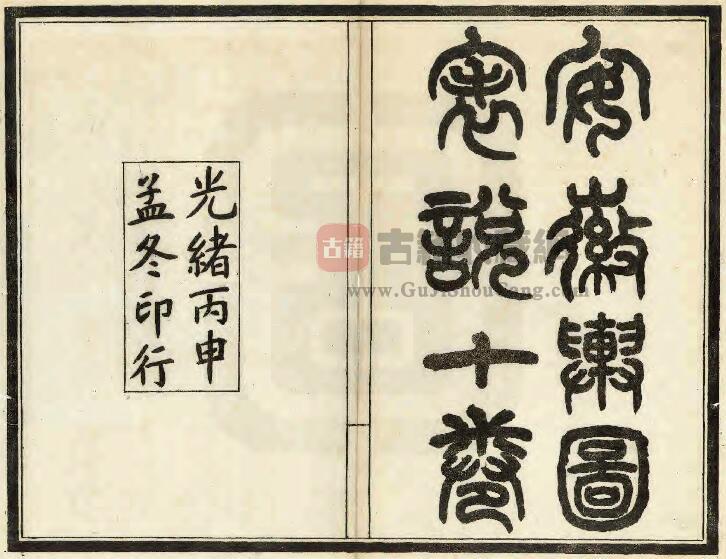 安徽輿圖
表說十卷
光緒丙申
孟冬印行
古籍
www.GuJiShouCang.com